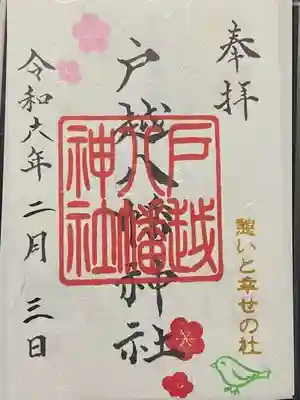 奉拝
戸越八幡神社
戸越
八幡
神社
憩いと幸せの社
令和六年二月三日